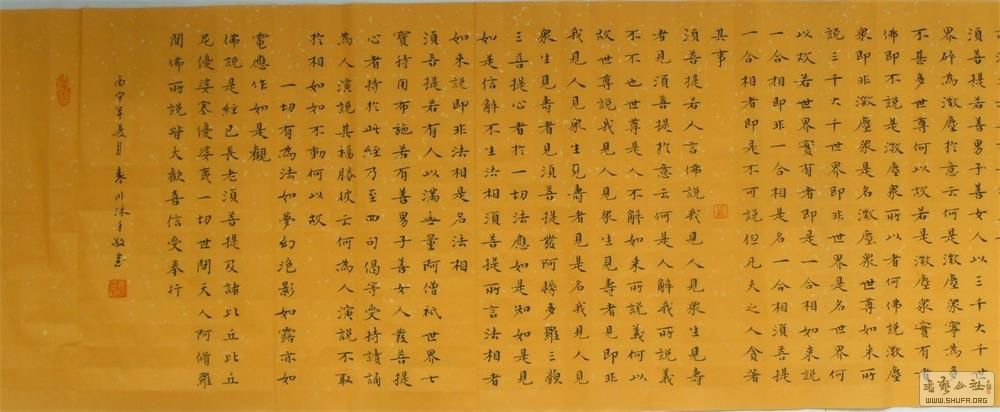 須菩提若善男子善女人以三千大千世
界碎為微塵於意云何是微塵眾寧為多
不甚多世尊何以故若是微塵眾實有者
佛即不說是微塵眾所以者何佛說微塵
眾即非微塵眾是名微塵眾世尊如來所
說三千大千世界即非世界是名世界何
以故若世界實有者即是一合相如來說
一合相即非一合相是名一合相須菩提
一合相者即是不可說但凡夫之人貪著
其事
須菩提若人言佛說我見人見眾生見壽
者見須菩提於意云何是人解我所說義
不不也世尊是人不解如來所說義何以
故世尊說我見人見眾生見壽者見即非
我見人見眾生見壽者見是名我見人見
眾生見壽者見須菩提發阿耨多羅三藐
三菩提心者於一切法應如是知如是見
如是信解不生法相須菩提所言法相者
如來說即非法相是名法相
須菩提若有人以滿無量阿僧祇世界七
寶持用布施若有善男子善女人發菩提
心者持於此經乃至四句偈等受持讀誦
為人演說其福勝彼云何為人演說不取
於相如如不動何以故
一切有為法如夢幻泡影如露亦如
電應作如是觀
佛說是經已長老須菩提及諸比丘比丘
尼優婆塞優婆夷一切世間天人阿脩羅
聞佛所說皆大歡喜信受奉行
丙申年夏月春川沐手敬書
WWW.SHUFA.ORG